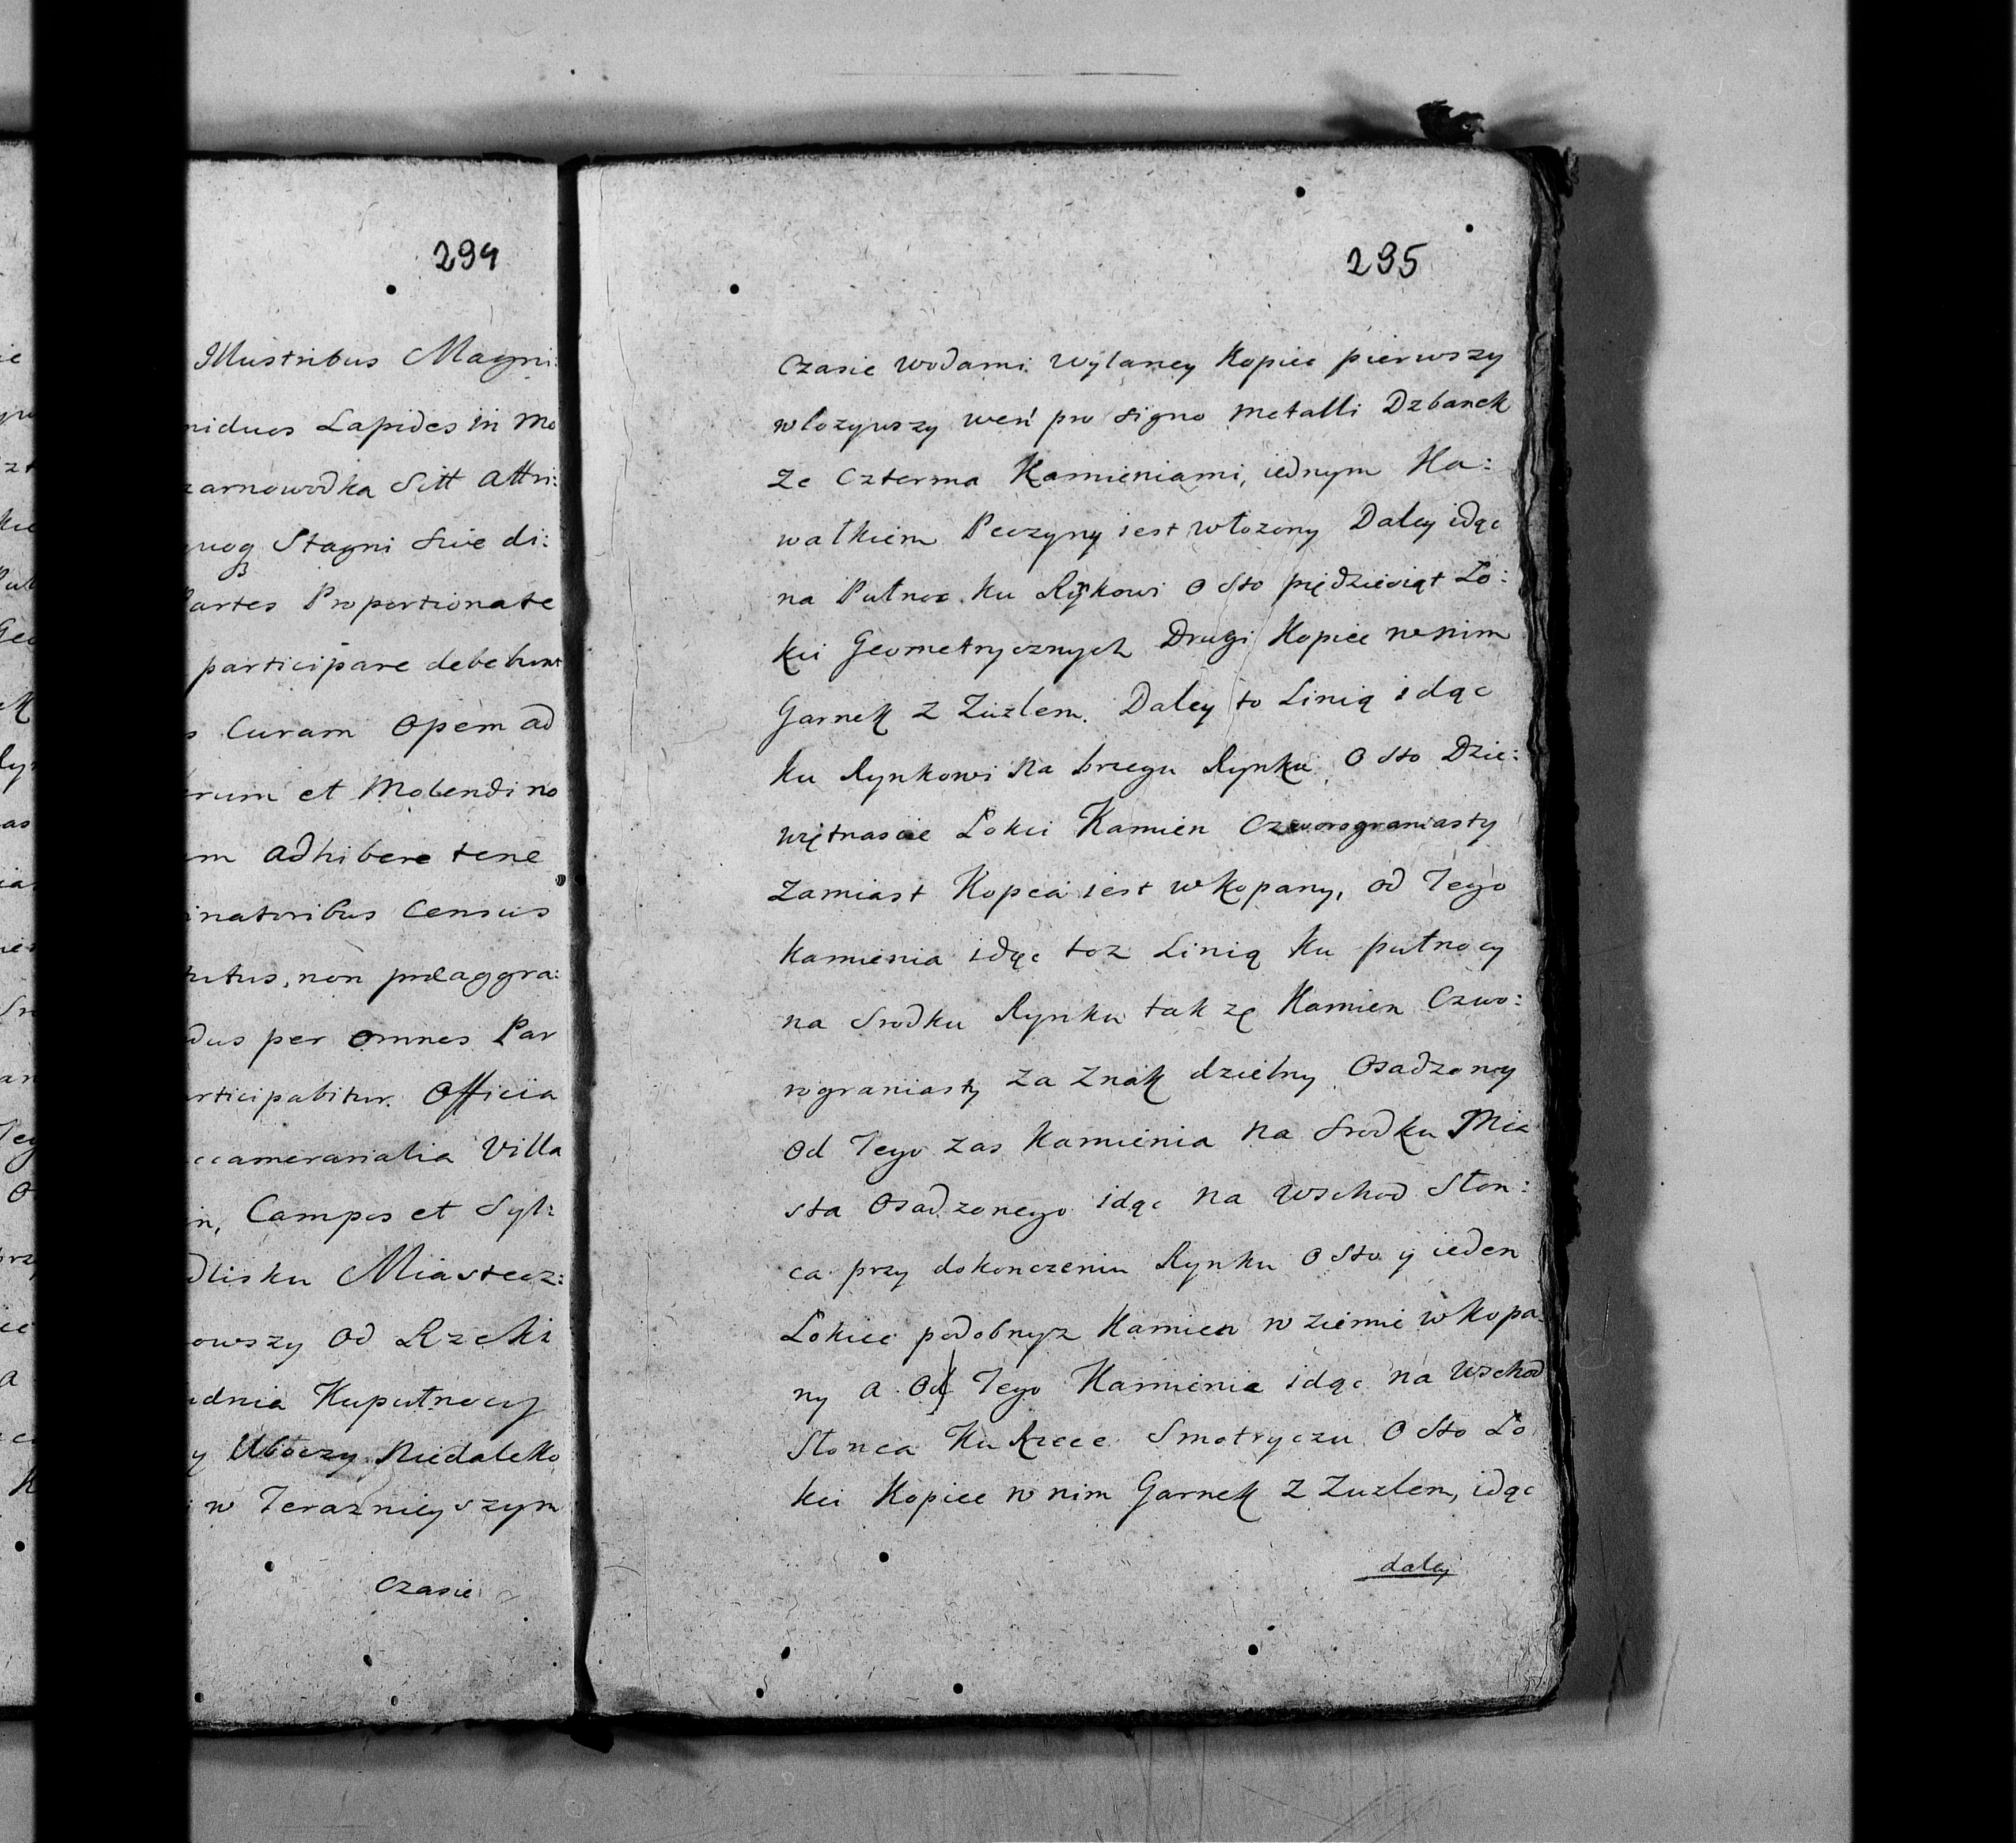 294
Illustribus Magni:
niduos Lapides in Mo
zarnowodka Sitt Attri:
Stagni Sive di:
artes Proportionate
participare debebunt
s Curam Opem ad
rum et Molendino
m adhibere tene
inatoribus Census
tutus, non præaggra:
dus per omnes Par
rticipabitur. Officia
ccameranalia Villa
n, Campos et Syl:
dlisku Miastecz:
owszy Od Rzeki
udnia Kupułnocy
y Uboczy Niedaleko
i w Teraznieyszym
czasie
295
Czasie wodami wylaney Kopiec pierwszy
wlozywszy weń pro signo metalli Dzbanek
Ze Czterma Kamieniami, iednym Ka:
wałkiem Peczyny iest włozony Daley idąc
na Pułnoc ku Rynkowi O Sto piędziesiąt Lo:
kci Geometrycznych Drugi Kopiec w nim
Garnek Z Zuzlem. Daley to Linią idąc
ku Rynkowi Na brzegu Rynku O sto Dzie:
więtnascie Lokci Kamien Czworograniasty
Zamiast Kopca iest wkopany, od Tego
kamienia idąc toz Linią ku pułnocy
na Srodku Rynku tak zę Kamien Czwo:
rograniasty za Znak dzielny Osadzony
Od Tego zas kamienia Na Srodku Mia
sta Osadzonego idąc Na Wschod Słon:
ca przy dokonczeniu Rynku O Sto y ieden
Lokiec podobnyz Kamien w ziemie wkopa:
ny a Od Tego Kamienia idąc na Wschod
Słonca Ku Rzece Smotryczu O Sto Lo
kci Kopiec w nim Garnek Z Zuzlem, idąc
daley